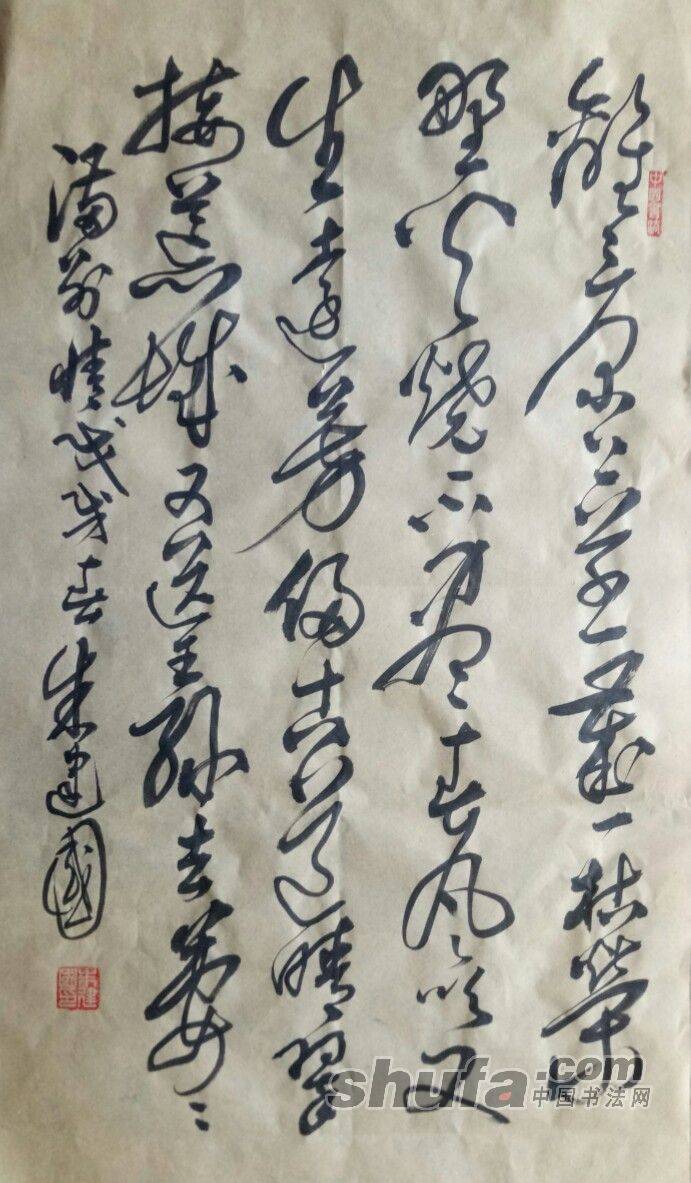 離〻原上草一歲一枯榮
野火燒不盡春風吹又
生遠芳侵古道晴翠
接荒城又送王孫去萋〻
滿別情戊戌春朱建國
朱建國印
shufa.com
中国书法网